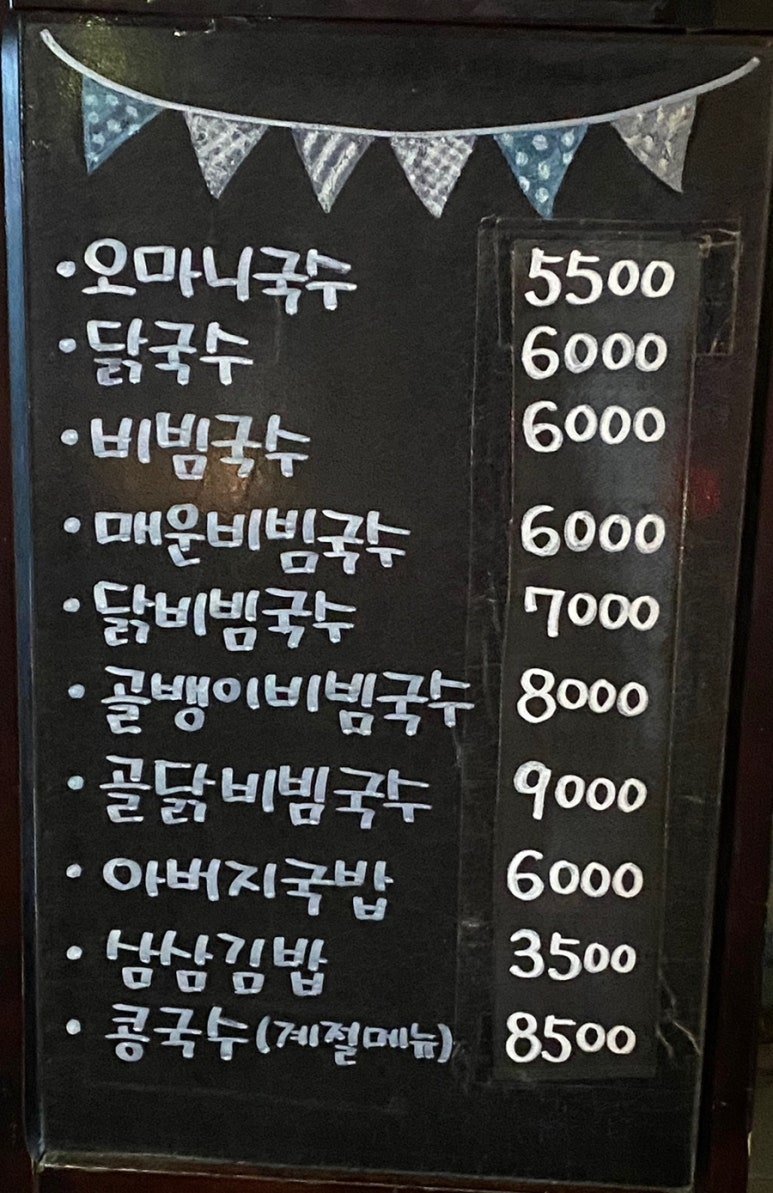 · 오마니국수 5500
· 닭국수 6000
· 비빔국수 6000
· 매운비빔국수 6000
· 닭비빔국수 7000
· 골뱅이비빔국수 8000
· 골닭비빔국수 9000
· 아버지국밥 6000
· 삼삼김밥 3500
· 콩국수(계절메뉴) 8500